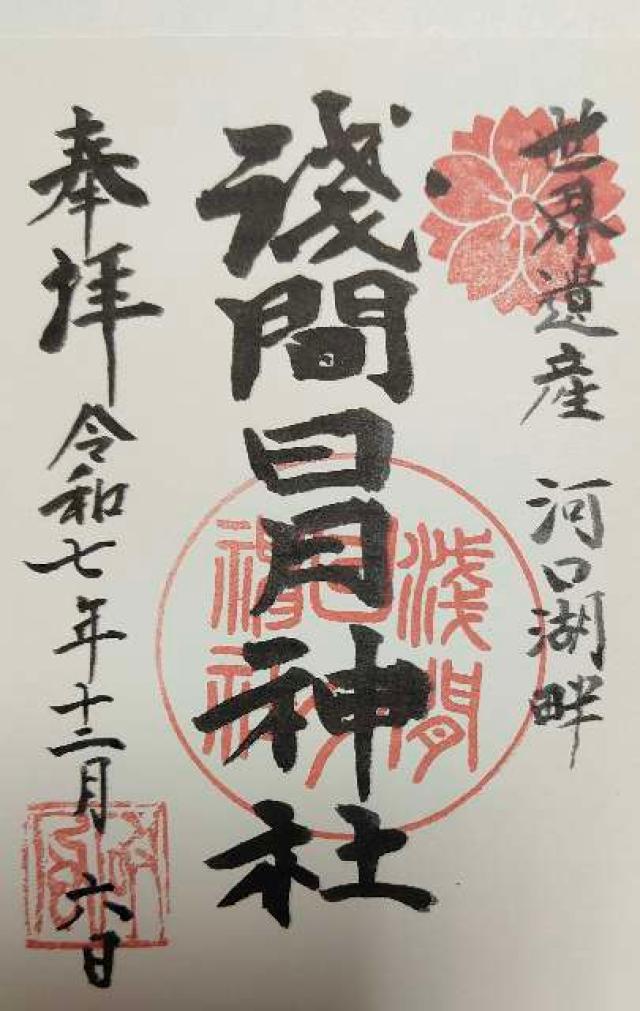 世界遺産 河口湖畔
淺間日月神社
奉拝 令和七年十二月六日
淺間
日月
神社